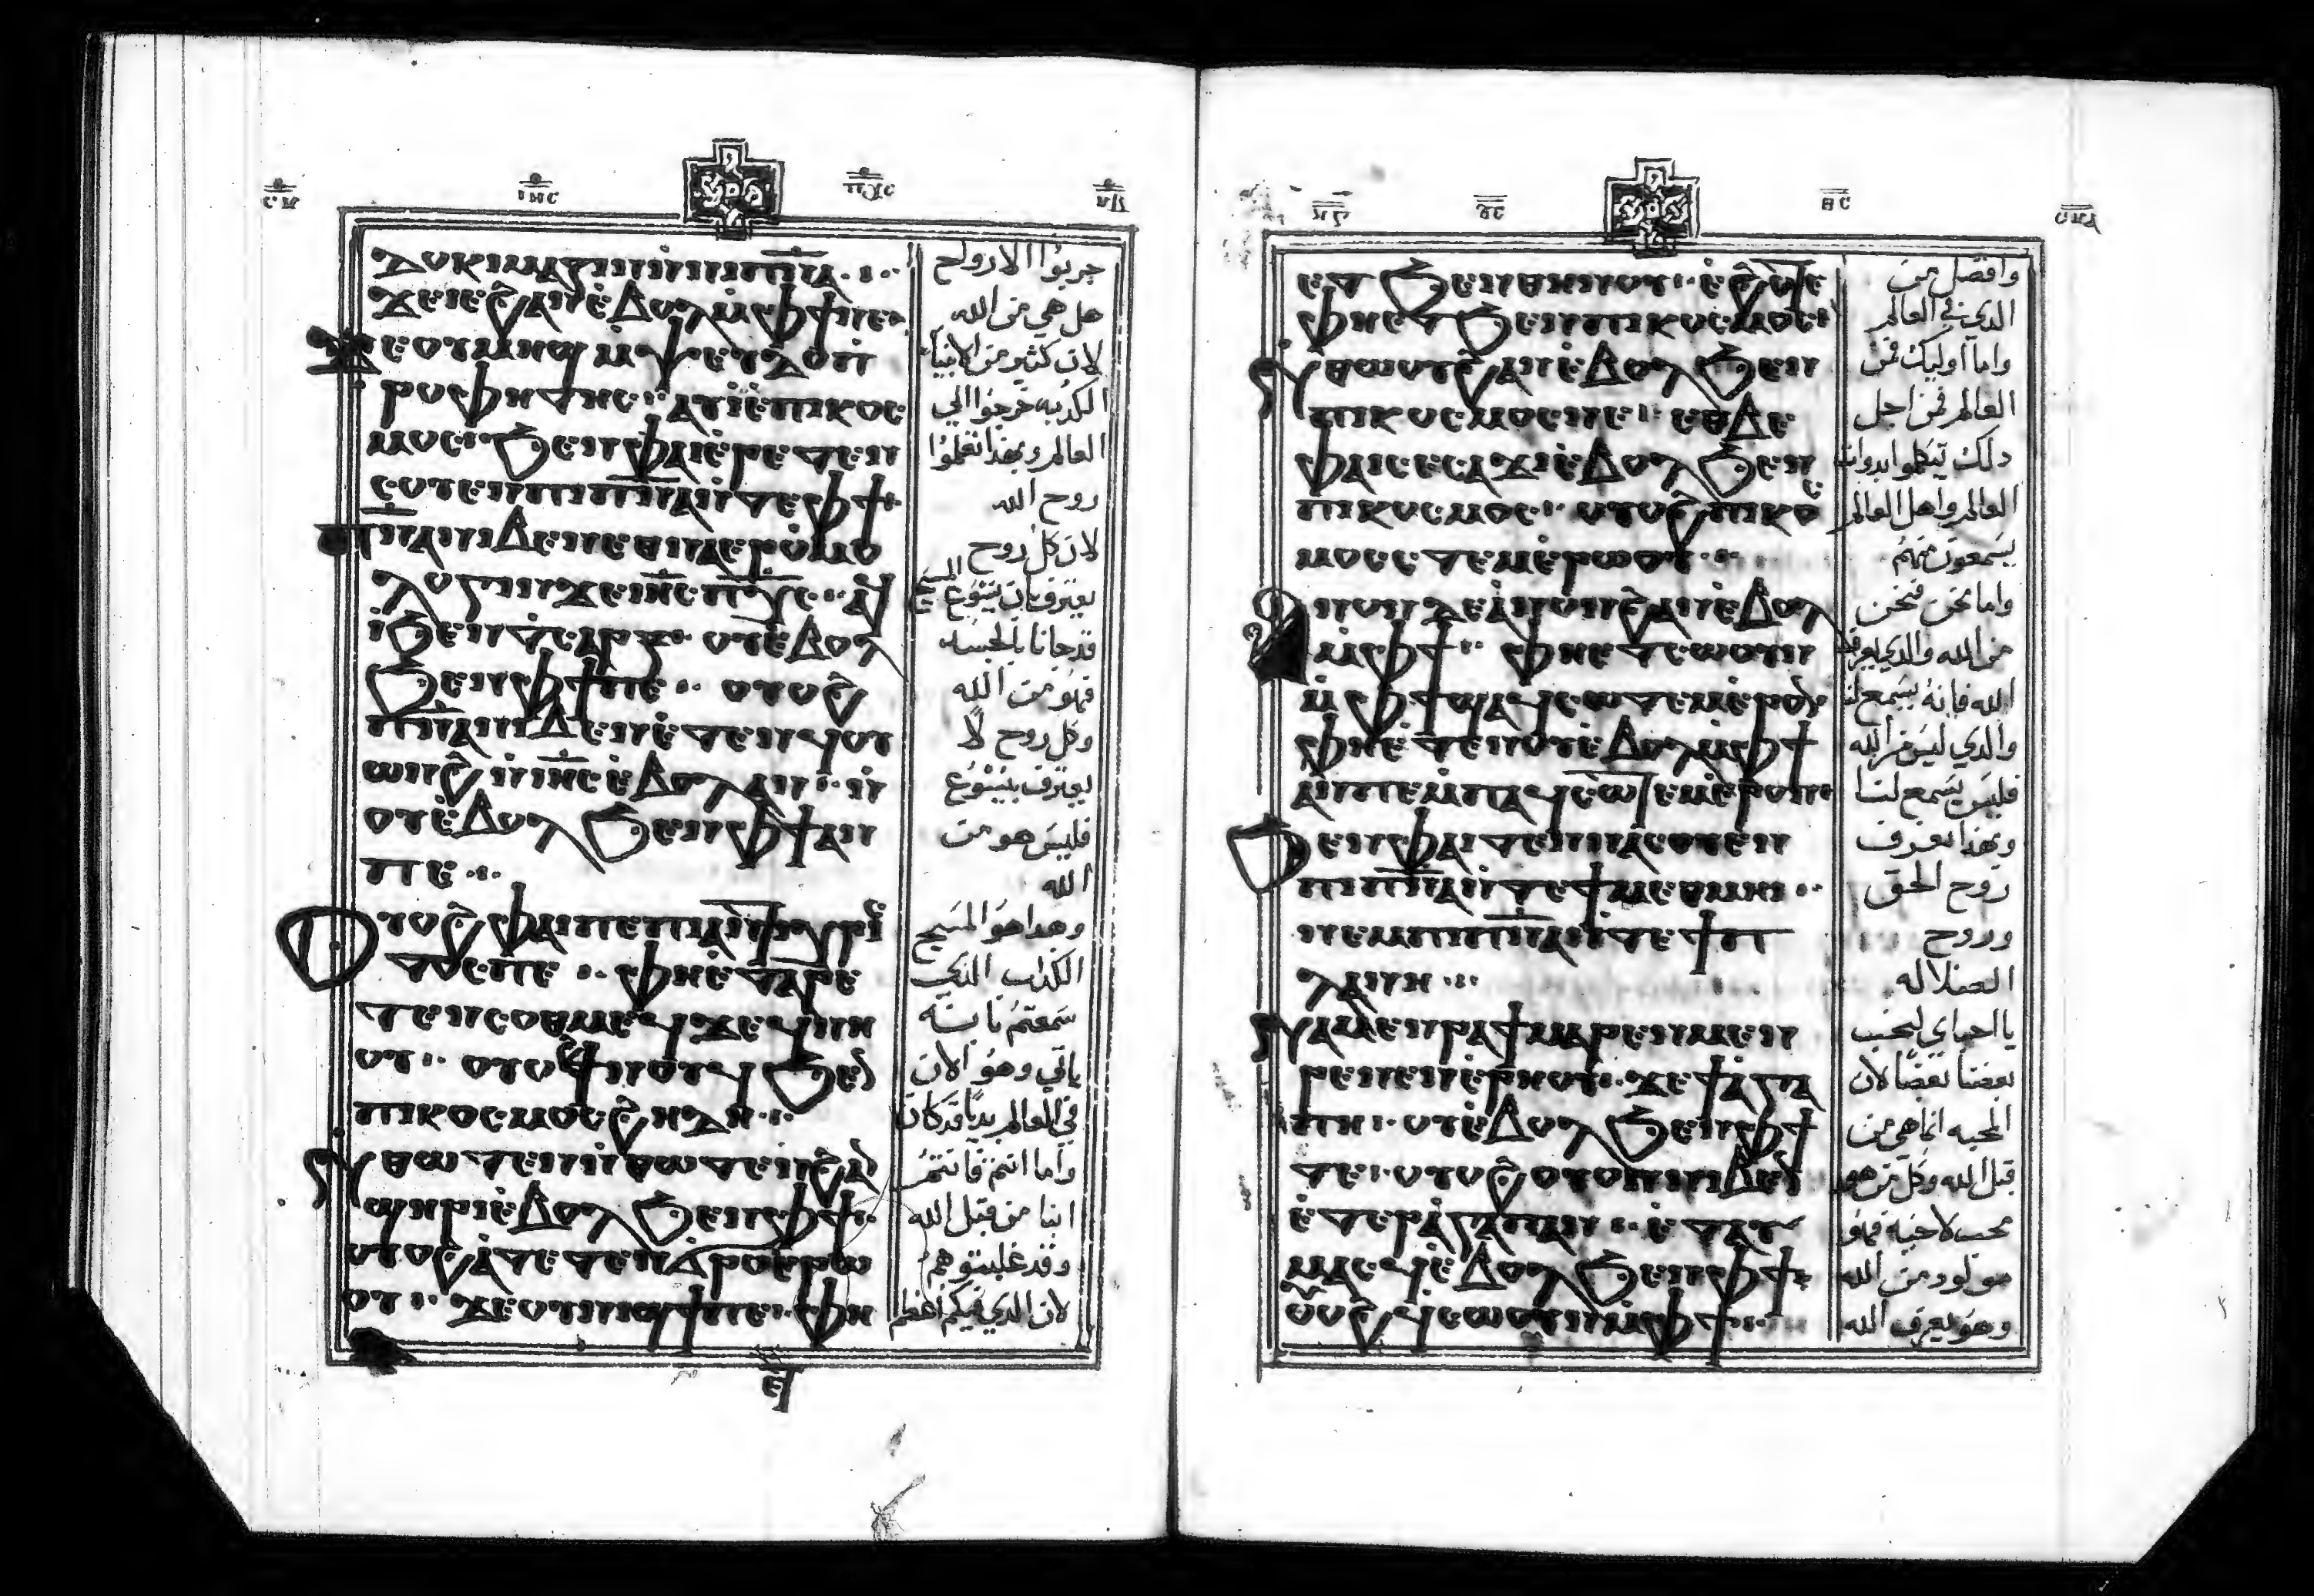 ⲓⲏ̅ⲥ̅ ⲡⲭ̅ⲥ̅
ⲇⲟⲕⲓⲙⲁⲍⲓⲛⲛⲓⲡⲛ̅ⲁ̅
ϫⲉⲓⲉϩⲁⲛⲉ̀ⲃⲟⲗⲙ̀ⲫϯⲛⲉ
ϫⲉⲟⲩⲙⲏϣⲙ̀ⲯⲉⲩⲇⲟⲡ
ⲣⲟⲫⲏⲧⲏⲥ ⲁⲩⲓ̀ⲉ̀ⲡⲓⲕⲟⲥ
ⲙⲟⲥ ϧⲉⲛⲫⲁⲓⲉ̀ⲣⲉⲧⲉⲛ
ⲥⲟⲩⲉⲛⲡⲓⲡⲛ̅ⲁ̅ⲛ̀ⲧⲉⲫϯ
ⲡⲛ̅ⲁ̅ⲛⲓⲃⲉⲛⲉⲑⲛⲁⲉⲣⲟ̀ⲙⲟ
ⲗⲟⲅⲓⲛϫⲉⲓⲏ̅ⲥ̅ⲡⲭ̅ⲥ̅ ⲁϥ
ⲓ̀ϧⲉⲛⲧⲥⲁⲣⲝ ⲟⲩⲉ̀ⲃⲟⲗ
ϧⲉⲛⲫϯⲡⲉ ⲟⲩⲟϩ
ⲡⲛ̅ⲁ̅ⲛⲓⲃⲉⲛⲉ̀ⲧⲉⲛϥⲟⲩ
ⲱⲛϩ ⲛ̀ⲓⲏ̅ⲥ̅ⲉ̀ⲃⲟⲗⲁⲛ ⲛ̀
ⲟⲩⲉ̀ⲃⲟⲗϧⲉⲛⲫϯⲁⲛ
ⲡⲉ
ⲟⲩⲟϩⲫⲁⲓⲡⲉⲡⲓⲁⲛⲧⲓⲭⲣⲓⲥ
ⲧⲟⲥⲡⲉ ⲫⲏⲉ̀ⲧⲁⲣⲉ
ⲧⲉⲛⲥⲟⲑⲙⲉϥϫⲉϥⲛⲏ
ⲟⲩ ⲟⲩⲟϩϯⲛⲟⲩϥϧⲉⲛ
ⲡⲓⲕⲟⲥⲙⲟⲥϩⲏⲇⲏ
ⲛ̀ⲑⲱⲧⲉⲛⲛ̀ⲑⲱⲧⲉⲛϩⲁⲛ
ϣⲏⲣⲓⲉ̀ⲃⲟⲗϧⲉⲛⲫϯ
ⲟⲩⲟϩⲁ̀ⲧⲉⲧⲉⲛϭⲣⲟⲉⲣⲱ
ⲟⲩ ϫⲉⲟⲩⲛⲓϣϯⲡⲉ ⲫⲏ
جربوا الارواح
هل هي من الله
لان كثير من الانبيا
الكدبه خرجوا الي
العالم وبهذا تعلموا
روح الله
لان كل روح
يعترف بان يسوع المسيح
قد جانا بالجسد
فهو من الله
وكل روح لا
يعترف بيسوع
فليس هو من
الله
وهدا هو المسيح
الكداب الذي
سمعتم بانه
ياتي وهو الان
في العالم بديا قد كان
واما انتم فانتم
ابنا من قبل الله
وقد غلبتوهم
لان الدي فيكم اعظم
ⲉⲧϧⲉⲛⲑⲏⲛⲟⲩ ⲉ̀ϩⲟⲧⲉ
ⲫⲏⲉⲧϧⲉⲛⲡⲓⲕⲟⲥⲙⲟⲥ
ⲛ̀ⲑⲱⲟⲩϩⲁⲛⲉ̀ⲃⲟⲗϧⲉⲛ
ⲡⲓⲕⲟⲥⲙⲟⲥⲛⲉ ⲉⲑⲃⲉ
ⲫⲁⲓⲥⲉⲥⲁϫⲓⲉ̀ⲃⲟⲗϧⲉⲛ
ⲡⲓⲕⲟⲥⲙⲟⲥ ⲟⲩⲟϩⲡⲓⲕⲟⲥ
ⲙⲟⲥⲥⲧⲉⲙⲉ̀ⲣⲱⲟⲩ
ⲁⲛⲟⲛϫⲉⲁ̀ⲛⲟⲛϩⲁⲛⲉ̀ⲃⲟⲗ
ⲙ̀ⲫϯ ⲫⲏⲉⲧⲥⲱⲟⲩⲛ
ⲙ̀ⲫϯϣⲁϥⲥⲱⲧⲉⲙⲉ̀ⲣⲟⲛ
ⲫⲏⲉ̀ⲧⲉⲛⲟⲩⲉ̀ⲃⲟⲗⲙ̀ⲫϯ
ⲁⲛⲡⲉⲙ̀ⲡⲁϥⲥⲱⲧⲉⲙⲉ̀ⲣⲟⲛ
ϧⲉⲛⲫⲁⲓⲧⲉⲛⲛⲁⲥⲟⲩⲉⲛ
ⲡⲓⲡⲛ̅ⲁ̅ⲛ̀ⲧⲉϯⲙⲉⲑⲙⲏⲓ
ⲛⲉⲙⲡⲓⲡⲛ̅ⲁ̅ⲛ̀ⲧⲉϯⲡ
ⲗⲁⲛⲏ
ⲛⲁⲙⲉⲛⲣⲁϯⲙⲁⲣⲉⲛⲙⲉⲛ
ⲣⲉⲛⲉⲛⲉ̀ⲣⲏⲟⲩ ϫⲉϯⲁⲅⲁ
ⲡⲏ ⲟⲩⲉ̀ⲃⲟⲗϧⲉⲛⲫϯ
ⲧⲉ ⲟⲩⲟϩⲟⲩⲟⲛⲛⲓⲃⲉⲛ
ⲉ̀ⲧⲉⲣⲁ̀ⲅⲁⲡⲁⲛ ⲉ̀ⲧⲁⲩ
ⲙⲁⲥϥⲉ̀ⲃⲟⲗϧⲉⲛⲫϯ
ⲟⲩⲟϩϥⲥⲱⲟⲩⲛⲙ̀ⲫϯ
وافضل من
الدي في العالم
واما اوليك فمن
العالم فمن اجل
دلك تيكلموا بدوات
العالم واهل العالم
يسمعون منهم
واما نحن فنحن
من الله والدي يعرف
الله فانه يسمع لنا
والدي ليس من الله
فليس يسمع لنا
وبهذا نعرف
روح الحق
وروح
الضلاله
يا احباي ليحب
بعضنا بعضا لان
المحبه انما هي من
قبل الله وكل من هو
محب لاخيه فهو
مولود من الله
وهو يعرف الله